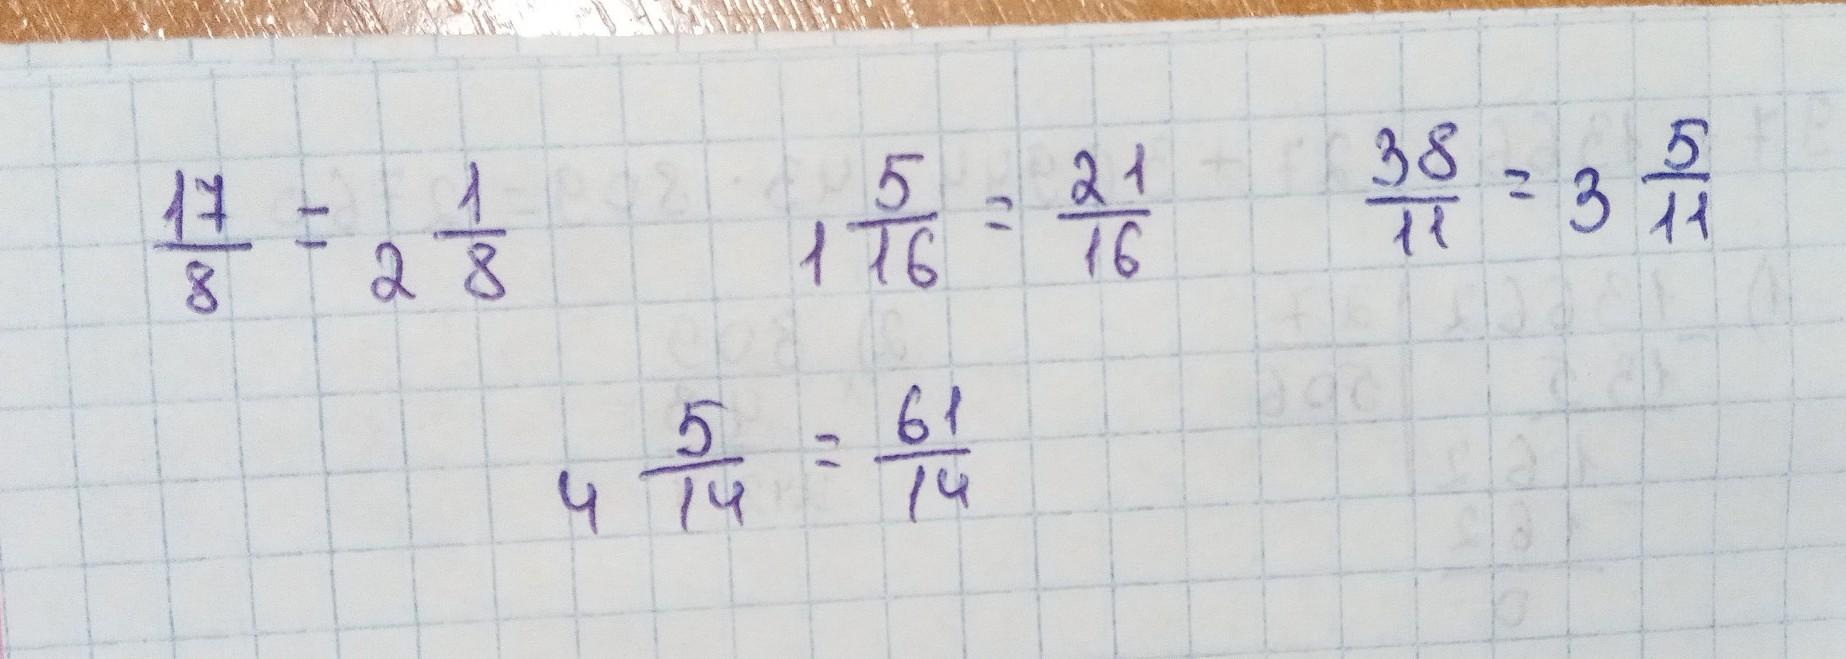 17/8 = 2 1/8    1 5/16 = 21/16    38/11 = 3 5/11
4 5/14 = 61/14